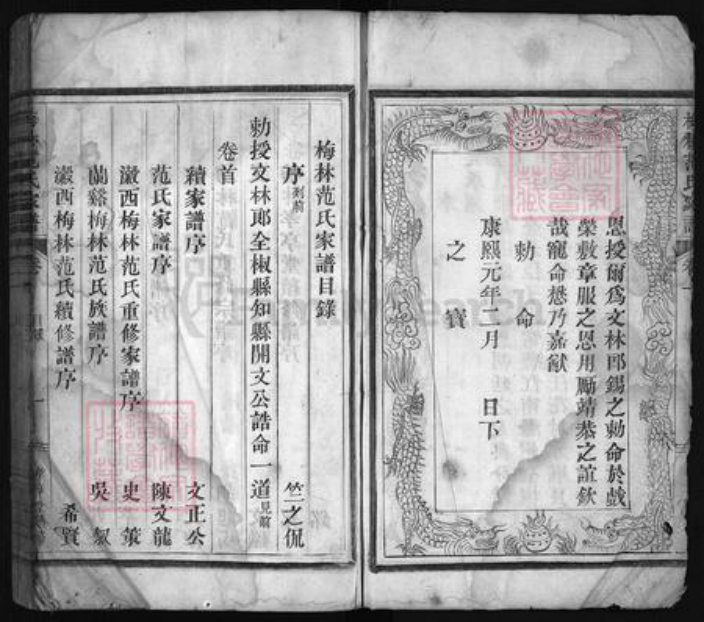 恩授爾爲文林郎錫之勅命於戲
榮敷章服之恩用勵靖恭之誼欽
哉寵命懋乃嘉猷
勅命
康熙元年二月 日下
之寶
梅林范氏家譜目錄
序列前 竺之侃
勅授文林郎全椒縣知縣開文公誥命一道見前
卷首
續家譜序 文正公
范氏家譜序 陳文龍
瀫西梅林范氏重修家譜序 史策
蘭谿梅林范氏族譜序 吳
瀫西梅林范氏續修譜序 希賢